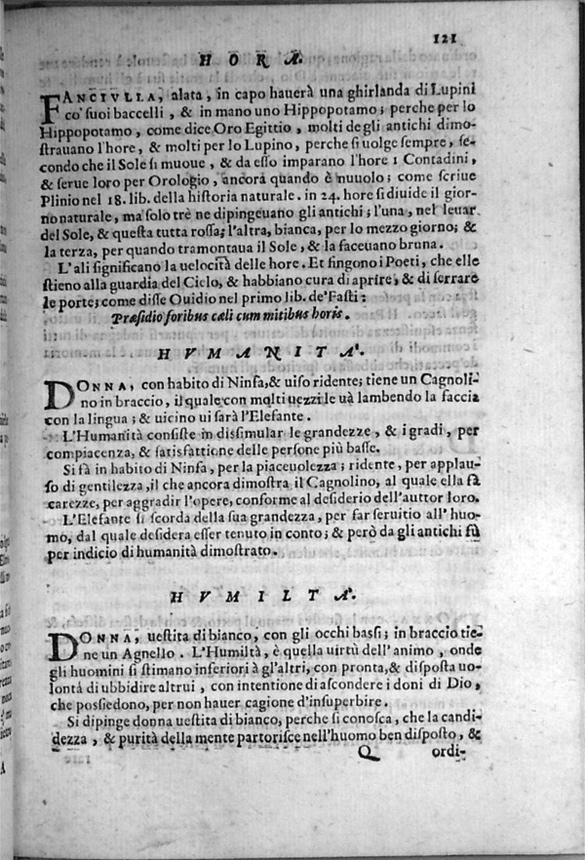 121
HORA.
FANCIVLLA, alata, in capo hauerà una ghirlanda di Lupini
co' suoi baccelli, & in mano uno Hippopotamo; perche per lo
Hippopotamo, come dice Oro Egittio, molti degli antichi dimo-
strauano l'hore, & molti per lo Lupino, perche si uolge sempre, se-
condo che il Sole si muoue, & da esso imparano l'hore i Contadini,
& serue loro per Orologio, ancorà quando è nuuolo; come scriue
Plinio nel 18. lib. della historia naturale. in 24. hore si diuide il gior-
no naturale, ma solo trè ne dipingeuano gli antichi; l'una, nel leuar
del Sole, & questa tutta rossa; l'altra, bianca, per lo mezzo giorno; &
la terza, per quando tramontaua il Sole, & la faceuano bruna.
L'ali significano la uelocità delle hore. Et fingono i Poeti, che elle
stieno alla guardia del Cielo, & habbiano cura di aprire, & di serrare
le porte; come disse Ouidio nel primo lib. de' Fasti:
Præsidio foribus cæli cum mitibus horis.
HVMANITA'.
DONNA, con habito di Ninfa, & uiso ridente; tiene un Cagnoli-
no in braccio, il quale con molti uezzi le uà lambendo la faccia
con la lingua; & uicino ui sarà l'Elefante.
L'Humanità consiste in dissimular le grandezze, & i gradi, per
compiacenza, & satisfattione delle persone più basse.
Si fà in habito di Ninfa, per la piaceuolezza; ridente, per applau-
so di gentilezza, il che ancora dimostra il Cagnolino, al quale ella fà
carezze, per aggradir l'opere, conforme al desiderio dell'auttor loro.
L'Elefante si scorda della sua grandezza, per far seruitio all'huo-
mo, dal quale desidera esser tenuto in conto; & però da gli antichi fù
per indicio di humanità dimostrato.
HVMILTA'.
DONNA, uestita di bianco, con gli occhi bassi; in braccio tie-
ne un Agnello. L'Humiltà, è quella uirtù dell'animo, onde
gli huomini si stimano inferiori à gl'altri, con pronta, & disposta uo-
lontà di ubbidire altrui, con intentione di ascondere i doni di Dio,
che possiedono, per non hauer cagione d'insuperbire.
Si dipinge donna uestita di bianco, perche si conosca, che la candi-
dezza, & purità della mente partorisce nell'huomo ben disposto, &
Q ordi-